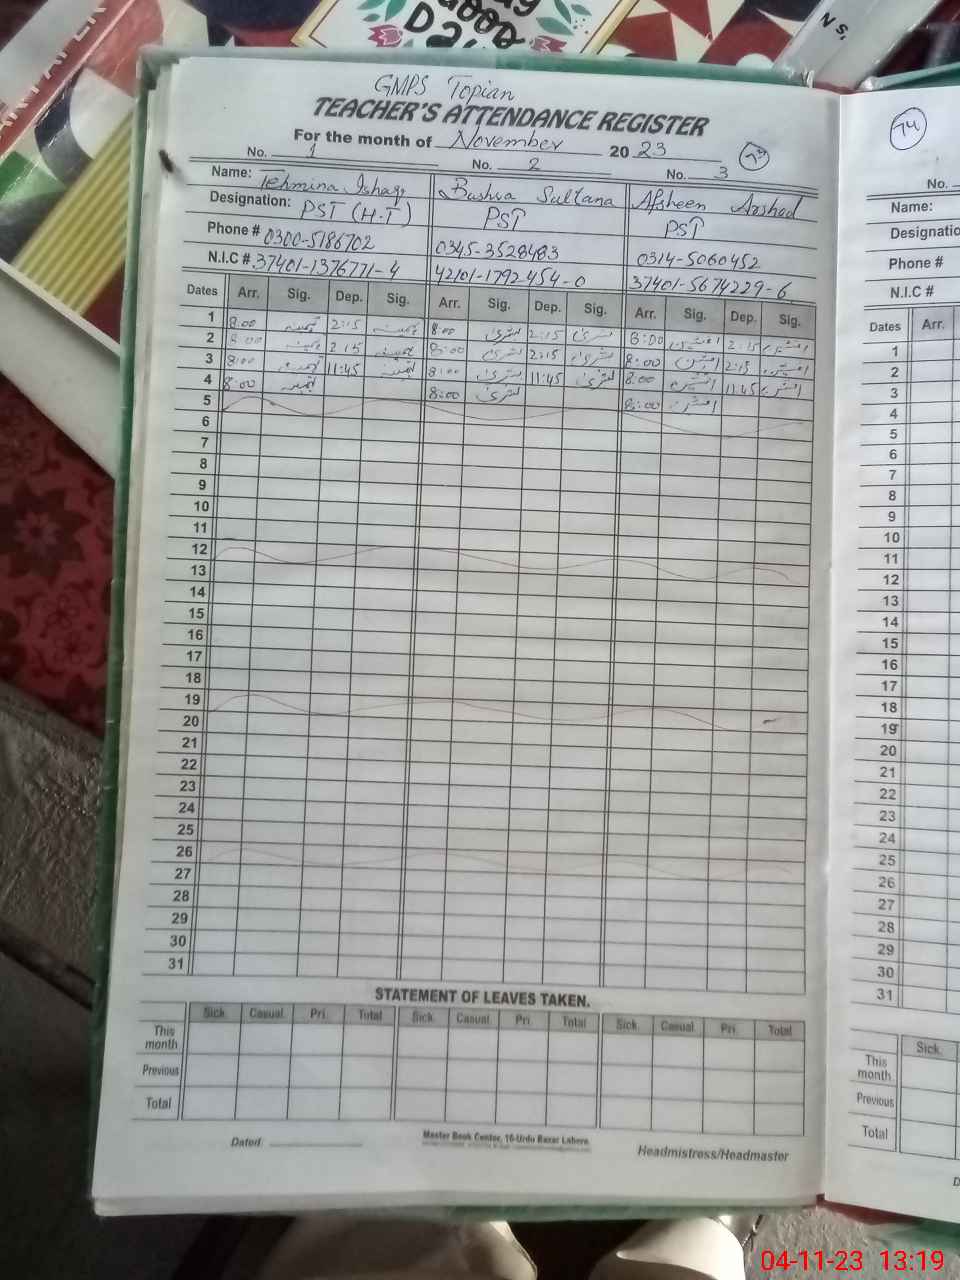 GOOD
DAY
N S,
ART PAPER
GMPS Topian
TEACHER'S ATTENDANCE REGISTER
For the month of November 2023
73
74
No. 1 No. 2 No. 3
Name: Tehmina Ishaq Bushra Sultana Afsheen Arshad
Designation: PST (H.T) PST PST
Phone # 0300-5186702 0345-3528483 0314-5060452
N.I.C # 37401-1376771-4 42101-1792454-0 37401-5674229-6
Dates Arr. Sig. Dep. Sig. Arr. Sig. Dep. Sig. Arr. Sig. Dep. Sig.
1 8:00 تہمینہ 2:15 تہمینہ 8:00 بشریٰ 2:15 بشریٰ 8:00 افشین 2:15 افشین
2 8:00 تہمینہ 2:15 تہمینہ 8:00 بشریٰ 2:15 بشریٰ 8:00 افشین 2:15 افشین
3 8:00 تہمینہ 11:45 تہمینہ 8:00 بشریٰ 11:45 بشریٰ 8:00 افشین 11:45 افشین
4 8:00 تہمینہ 8:00 بشریٰ 8:00 افشین
5
6
7
8
9
10
11
12
13
14
15
16
17
18
19
20
21
22
23
24
25
26
27
28
29
30
31
STATEMENT OF LEAVES TAKEN.
Sick. Casual. Pri. Total Sick. Casual. Pri. Total Sick. Casual. Pri. Total
This month
Previous
Total
Dated:
Master Book Center, 16-Urdu Bazar Lahore.
Headmistress/Headmaster
No.
Name:
Designatio
Phone #
N.I.C #
Dates Arr.
1
2
3
4
5
6
7
8
9
10
11
12
13
14
15
16
17
18
19
20
21
22
23
24
25
26
27
28
29
30
31
Sick.
This month
Previous
Total
D
04-11-23 13:19